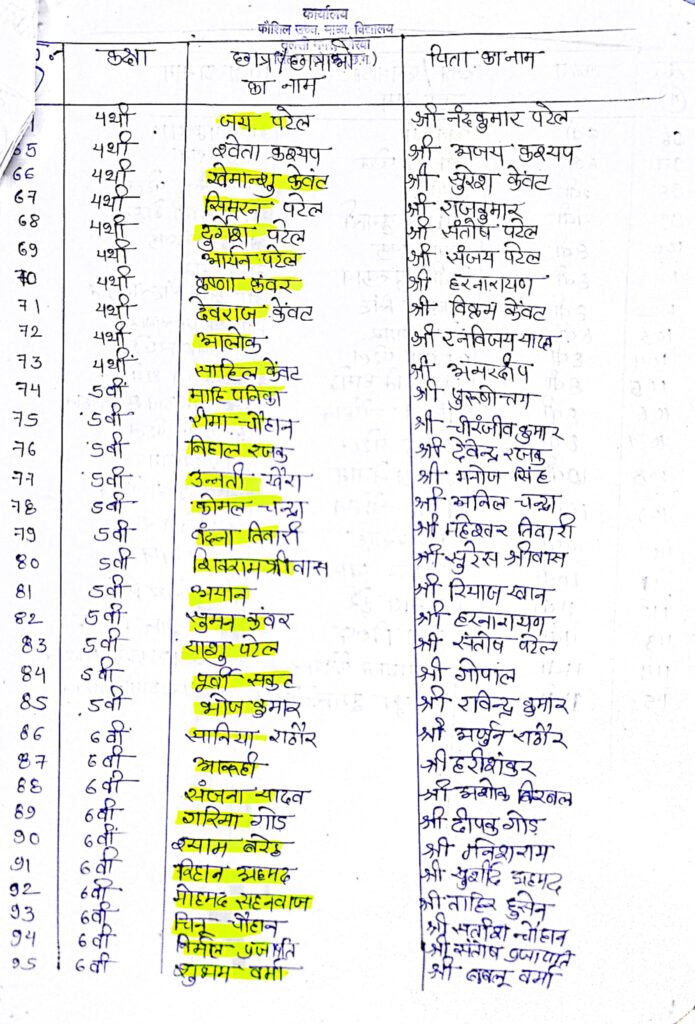 कार्यालय
कौशिल उच्च. माध्य. विद्यालय
क्र. कक्षा छात्र/छात्राओं पिता का नाम
का नाम
4थी जय पटेल श्री नंदकुमार पटेल
65 4थी श्वेता कश्यप श्री अजय कश्यप
66 4थी खेमान्शु केंवट श्री सुरेश केंवट
67 4थी सिमरन पटेल श्री राजकुमार
68 4थी दुर्गेश पटेल श्री संतोष पटेल
69 4थी आर्यन पटेल श्री संजय पटेल
70 4थी कृष्णा कंवर श्री हरनारायण
71 4थी देवराज केंवट श्री विक्रम केंवट
72 4थी आलोक श्री रनविजय यादव
73 4थी साहिल केंवट श्री अमरदीप
74 5वीं माहि पनिका श्री पुरूषोत्तम
75 5वीं रीमा चौहान श्री चीरंजीव कुमार
76 5वीं निहाल रजक श्री देवेन्द्र रजक
77 5वीं उन्नती खैरा श्री मनोज सिंह
78 5वीं कोमल चन्द्रा श्री अनिल चन्द्रा
79 5वी वंदना तिवारी श्री महेश्वर तिवारी
80 5वीं शिवराम श्रीवास श्री सुरेस श्रीवास
81 5वी अयान श्री रियाज खान
82 5वी सुमन कंवर श्री हरनारायण
83 5वी याशु पटेल श्री संतोष पटेल
84 5वीं पूर्वी सकुत श्री गोपाल
85 5वी भोज कुमार श्री रविन्द्र कुमार
86 6वीं सानिया राठौर श्री अर्जुन राठौर
87 6वीं श्री हरीशंकर
88 6वीं संजना यादव श्री अशोक बिरबल
89 6वीं गरिमा गोड़ श्री दीपक गोड़
90 6वीं श्याम बरेठ श्री मनिशराम
91 6वी रिहान अहमद श्री खुर्शीद अहमद
92 6वी मोहमद सहनवाज श्री ताहिर हुसेन
93 6वी चिनू चौहान श्री सतीश चौहान
94 6वी निर्मल प्रजापति श्री संतोष प्रजापति
95 6वी शुभम वर्मा श्री बबलू वर्मा